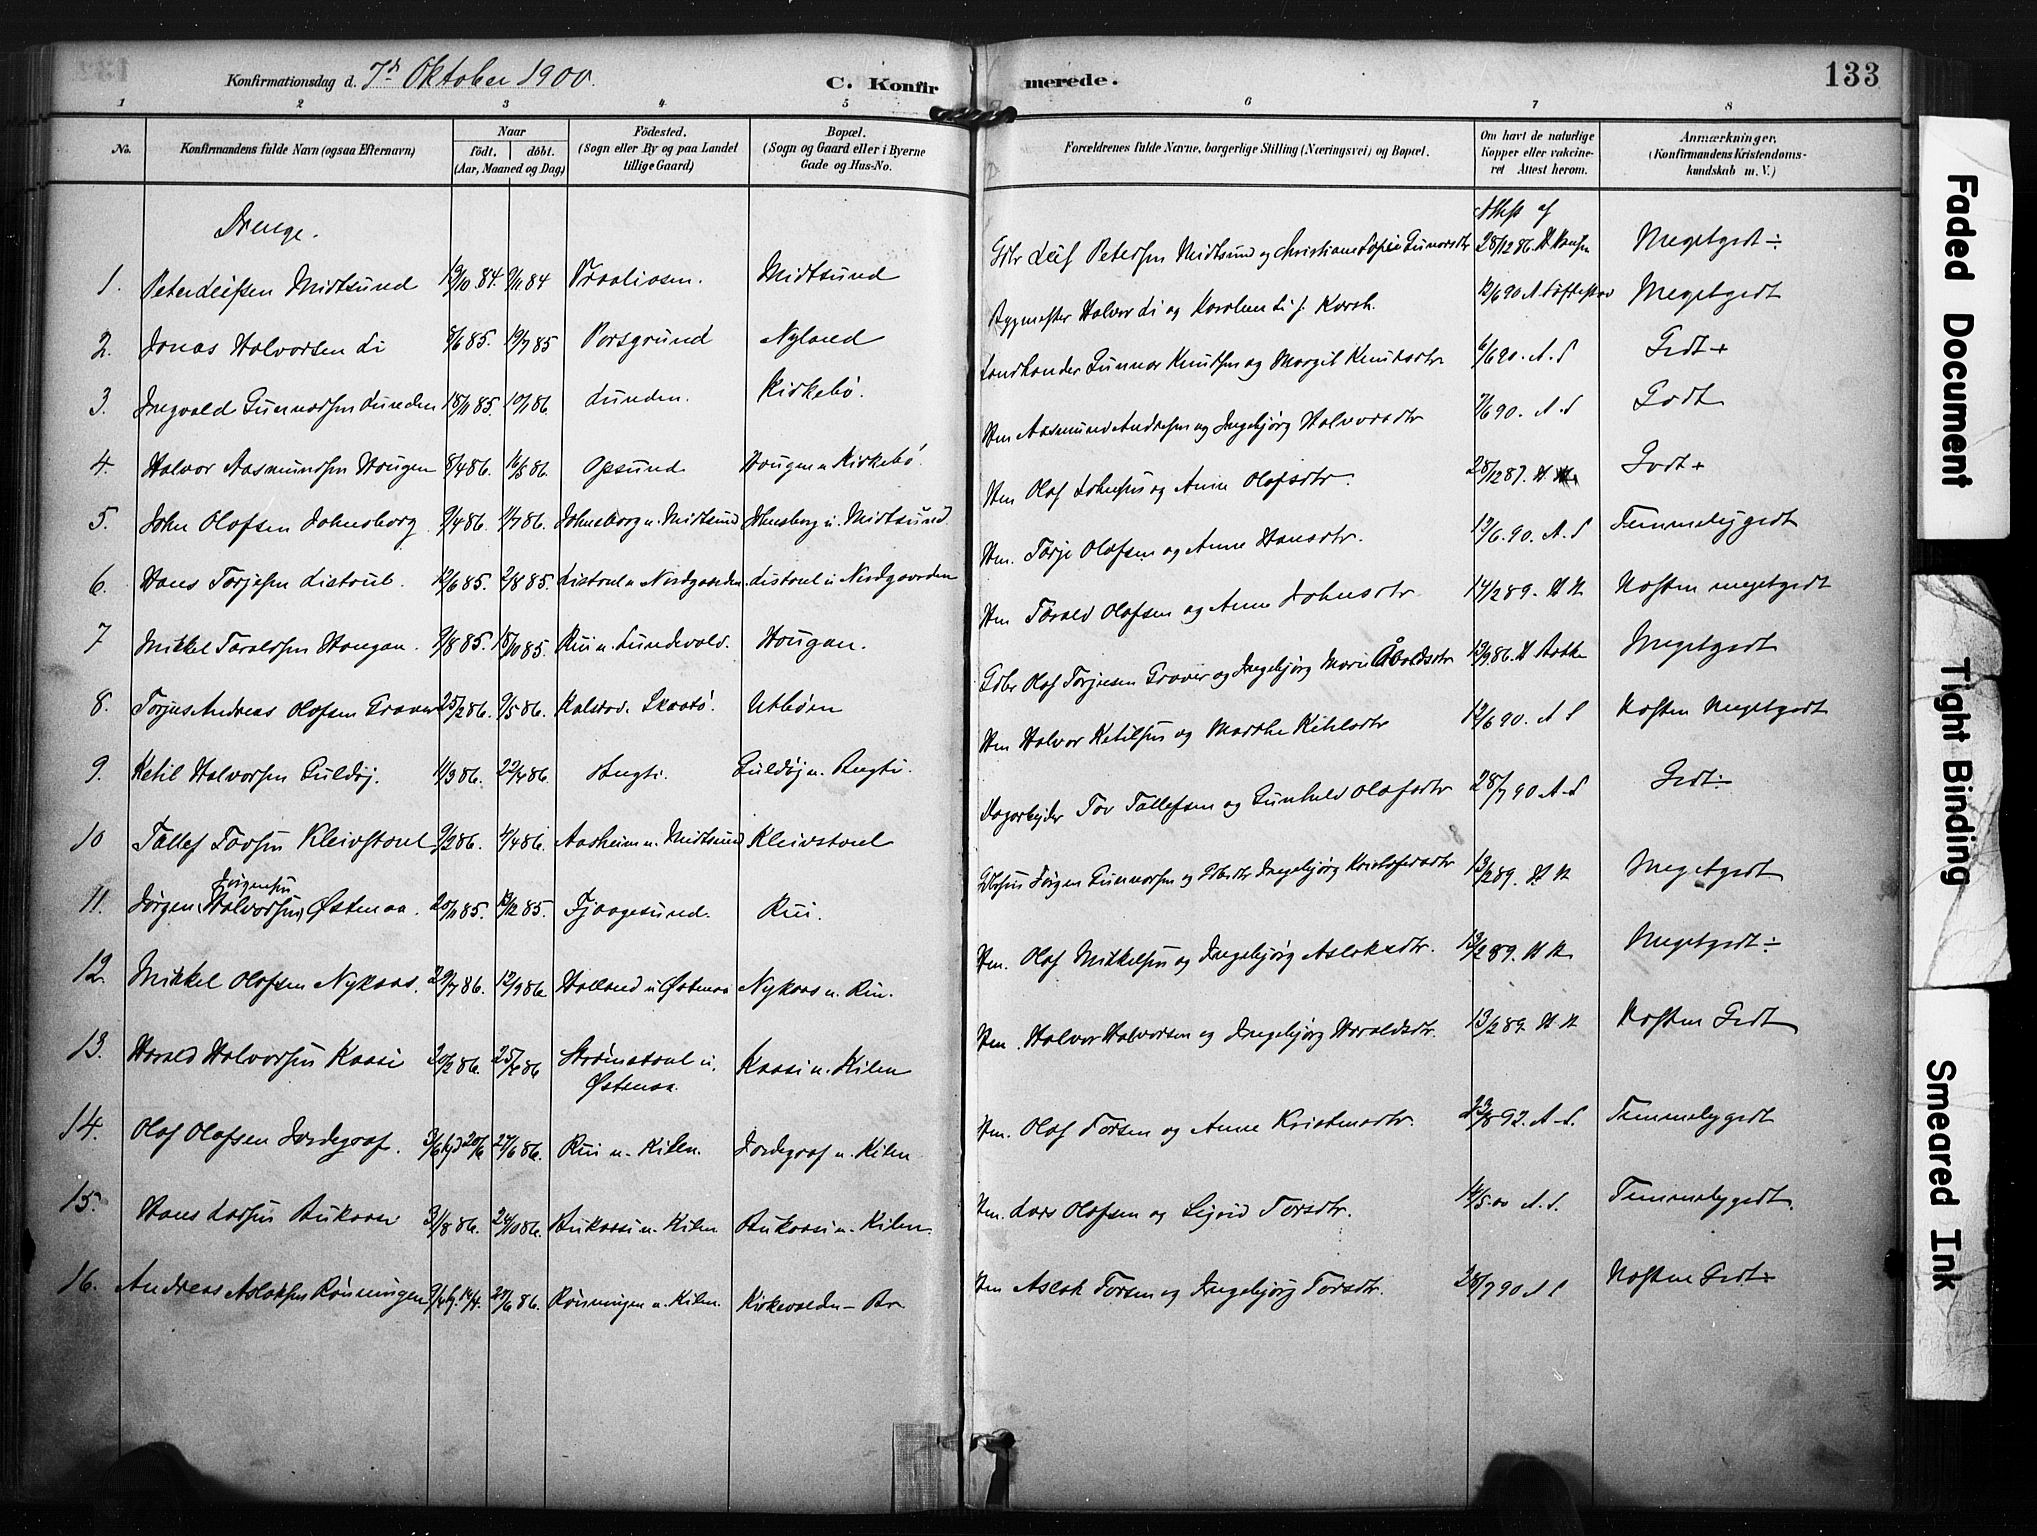 133
Konfirmationsdag d. 7de Oktober 1900.
C. Konfirmerede.
1 2 3 4 5 6 7 8
No.
Konfirmandens fulde Navn (ogsaa Efternavn)
Naar
født. døbt.
(Aar, Maaned og Dag)
Fødested.
(Sogn eller By og paa Landet
tillige Gaard)
Bopæl.
(Sogn og Gaard eller i Byerne
Gade og Hus-No.
Forældrenes fulde Navne, borgerlige Stilling (Næringsvei) og Bopæl.
Om havt de naturlige
Kopper eller vakcine-
ret Attest herom.
Anmærkninger,
(Konfirmandens Kristendoms-
kundskab m. V.)
Drenge.
Attest af
1. Peter Leifsen Midtsund 19/10 84. 9/11 84 Midtsund Gbr Leif Petersen Midtsund og Christiane Sofie Gunarsdtr 28/12 86. Megetgodt ÷
2. Jonas Halvorsen Li 8/6 85. 19/7 85 Porsgrund Nyland Bygmester Halvor Li og Karoline Li f. 12/6 90 A Megetgodt
3. Ingvald Gunnarsen Lunden 18/11 85. 10/1 86 Lunden. Kirkebø. Landhandler Gunnar Knudsen og Margit Knudsdtr 6/6 90. A. S Godt +
4. Halvor Aasmundsen Haugen 8/4 86. 16/5 86. Opsund Haugen u. Kirkebø. Hm Aasmund Andresen og Ingebjørg Halvorsdtr 7/6 90. A. S Godt
5. John Olafsen Johnsborg 9/4 86. 11/7 86. Johnsborg u. Midtsund Johnsborg u. Midtsund Hm Olaf Johnsen og Anne Olafsdtr. 28/12 87. H Godt +
6. Hans Torjesen Listoul. 12/6 85. 2/8 85. Listoul u Nordgaarden. Listoul u Nordgaarden Hm. Torje Olafsen og Anne Hansdtr. 12/6. 90. A. S Temmeliggodt
7 Mikkel Taraldsen Haugan. 9/8 85. 18/10 85. Rui u. Lundevald. Haugan. Hm Tarald Olafsen og Anne Johnsdtr. 14/2 89. H H Næsten megetgodt
8. Torjus Andreas Olafsen Graver 25/2 86. 9/5 86. Skaatø. Utbøen Gbr Olaf Torjusen Graver og Ingebjørg Marie 12/9 86. H Megetgodt
9. Ketil Halvorsen Guldøj. 11/3 86. 22/4 86. Bugti. Guldøj u. Bugti. Hm Halvor Ketilsen og Marthe Ketilsdtr 12/6 90. A S Næsten Megetgodt
10 Tallef Tovsen Kleivstoul 9/2 86. 4/4 86. Aasheim u. Midtsund Kleivstoul Dagarbejder Tov Tallefsen og Gunhild Olafsdtr 28/7 90 A. S Godt ÷
Jørgensen
11. Jørgen (Halvorsen) Østenaa. 20/11 85. 13/12 85. Fjaagesund. Rui. Jørgen Gunnarsen og Ingebjørg Kristofersdtr 13/2 89. H H Megetgodt
12. Mikkel Olafsen Nykaas. 29/7 86. 12/9 86 Halland u Østenaa Nykaas u. Rui. Hm. Olaf Mikkelsen og Ingebjørg Aslaksdtr. 13/2 89. H H Megetgodt ÷
13. Harald Halvorsen Kaasi 20/2 86. 25/4 86 Strømstoul u. Kaasi u. Kilen Hm. Halvor Halvorsen og Ingebjørg Haraldsdtr. 13/2 89. H H Næsten Godt
Østenaa.
14. Olaf Olafsen Jordegraf. 27/6 86. Rui u. Kilen. Jordegraf u. Kilen Hm. Olaf Torsen og Anne Kristensdtr. 23/8 92. A. S. Temmeliggodt
15. Hans Larsen Bukaasi 31/8 86. 24/10 86. Bukaasi u. Kilen Bukaasi u. Kilen. Hm. Lars Olafsen og Sigrid Torsdtr. 14/5. 00 A. S. Temmeliggodt
16. Andreas Aslaksen Rønningen 27/6 86. Rønningen u. Kilen. Hm Aslak Torsen og Ingebjørg Torsdtr. 28/7 90 A S Næsten Godt +
Faded Document
Tight Binding
Smeared Ink